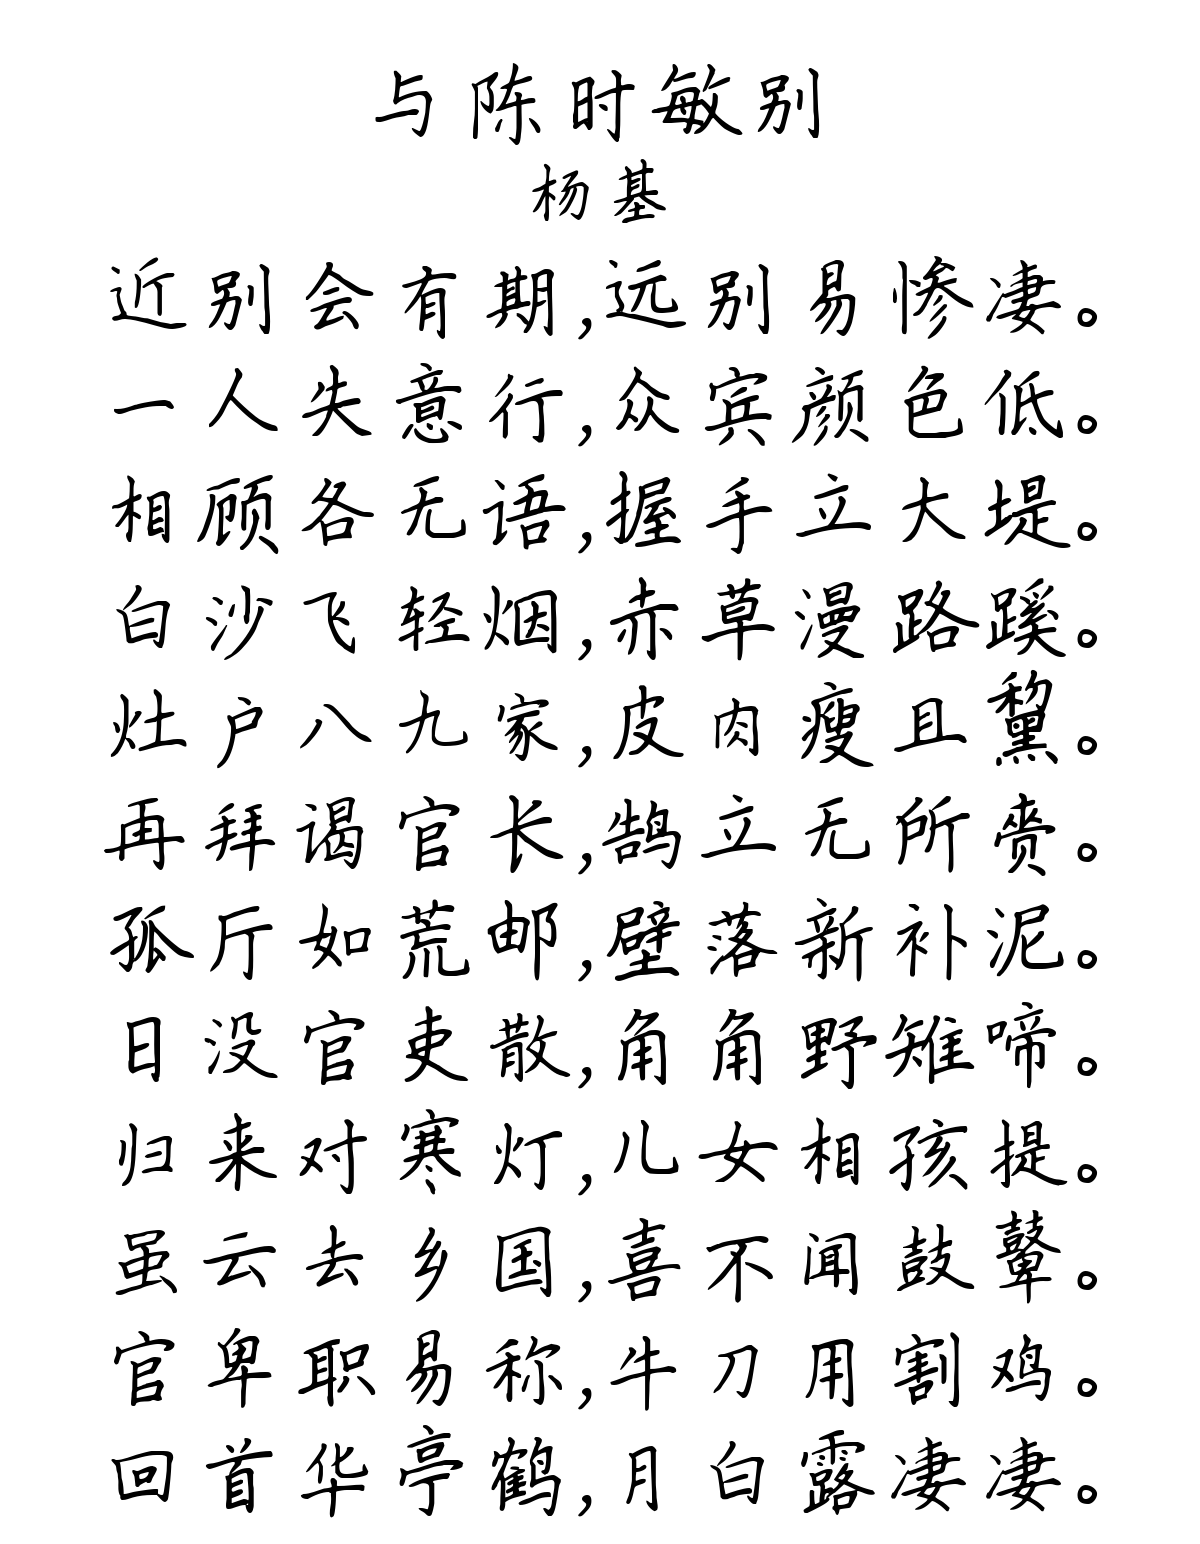 与陈时敏别
杨基
近别会有期,远别易惨凄。
一人失意行,众宾颜色低。
相顾各无语,握手立大堤。
白沙飞轻烟,赤草漫路蹊。
灶户八九家,皮肉瘦且黧。
再拜谒官长,鹄立无所赍。
孤厅如荒邮,壁落新补泥。
日没官吏散,角角野雉啼。
归来对寒灯,儿女相孩提。
虽云去乡国,喜不闻鼓鼙。
官卑职易称,牛刀用割鸡。
回首华亭鹤,月白露凄凄。